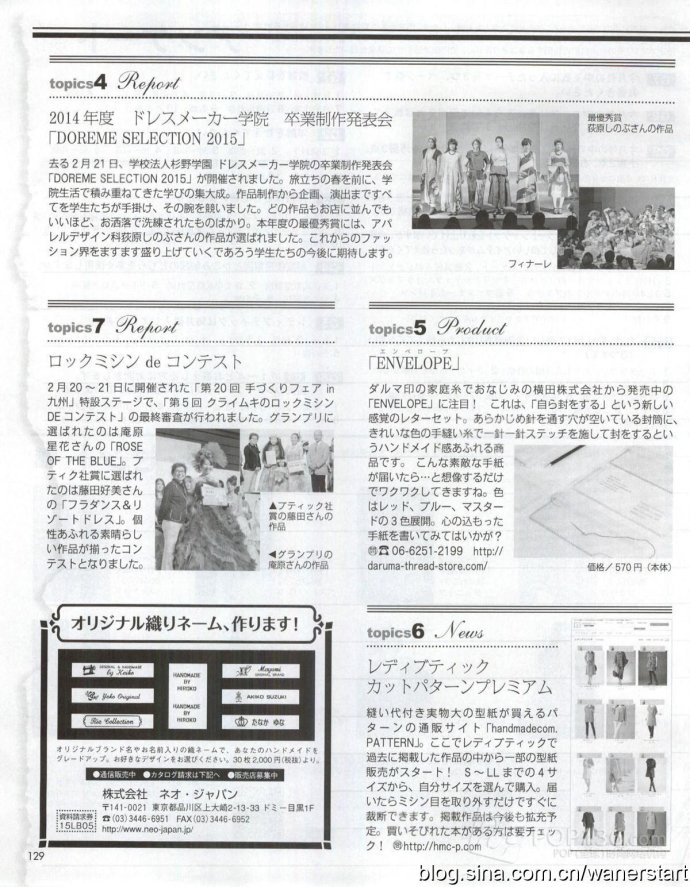 topics4 Report
2014年度　ドレスメーカー学院　卒業制作発表会
「DOREME SELECTION 2015」
去る2月21日、学校法人杉野学園 ドレスメーカー学院の卒業制作発表会
「DOREME SELECTION 2015」が開催されました。旅立ちの春を前に、学
院生活で積み重ねてきた学びの集大成。作品制作から企画、演出まですべ
てを学生たちが手掛け、その腕を競いました。どの作品もお店に並んでも
いいほど、お洒落で洗練されたものばかり。本年度の最優秀賞には、アパ
レルデザイン科荻原しのぶさんの作品が選ばれました。これからのファッ
ション界をますます盛り上げていくであろう学生たちの今後に期待します。
最優秀賞
荻原しのぶさんの作品
フィナーレ
topics7 Report
ロックミシン de コンテスト
2月20～21日に開催された「第20回 手づくりフェア in
九州」特設ステージで、「第5回 クライムキのロックミシン
DEコンテスト」の最終審査が行われました。グランプリに
選ばれたのは庵原
星花さんの「ROSE
OF THE BLUE」。ブ
ティック社賞に選ばれ
たのは藤田好美さん
の「フラダンス＆リ
ゾートドレス」。個
性あふれる素晴らし
い作品が揃ったコン
テストとなりました。
▲ブティック社
賞の藤田さんの
作品
◀グランプリの
庵原さんの作品
topics5 Product
エンベロープ
「ENVELOPE」
ダルマ印の家庭糸でおなじみの横田株式会社から発売中の
「ENVELOPE」に注目！　これは、「自ら封をする」という新しい
感覚のレターセット。あらかじめ針を通す穴が空いている封筒に、
きれいな色の手縫い糸で一針一針ステッチを施して封をするとい
うハンドメイド感あふれる商
品です。 こんな素敵な手紙
が届いたら…と想像するだけ
でワクワクしてきますね。色
はレッド、ブルー、マスター
ドの3色展開。心の込もった
手紙を書いてみてはいかが？
㉄☎06-6251-2199　http://
daruma-thread-store.com/
価格／570円（本体）
オリジナル織りネーム、作ります！
ORIGINAL & HANDMADE
by Keiko
HANDMADE
BY
HIROKO
Mayumi
ORIGINAL BRAND
Yoko Original
AKIKO SUZUKI
HANDMADE
BY
HIROKO
Rie Collection
たなか ゆな
オリジナルブランド名やお名前入りの織ネームで、あなたのハンドメイドを
グレードアップ。お好きなデザインをお選びください。30枚2,000円(税抜)より。
●通信販売中　●カタログ請求は下記へ　●販売店募集中
株式会社　ネオ・ジャパン
〒141-0021　東京都品川区上大崎2-13-33 ドミー目黒1F
☎(03)3446-6951　FAX(03)3446-6952
http://www.neo-japan.jp/
資料請求券
15LB05
topics6 News
レディブティック
カットパターンプレミアム
縫い代付き実物大の型紙が買えるパ
ターンの通販サイト「handmadecom.
PATTERN」。ここでレディブティックで
過去に掲載した作品の中から一部の型紙
販売がスタート！　S～LLまでの4サ
イズから、自分サイズを選んで購入。届
いたらミシン目を取り外すだけですぐに
裁断できます。掲載作品は今後も拡充予
定。買いそびれた本がある方は要チェッ
ク！ ㉄http://hmc-p.com
129
blog.sina.com.cn/wanerstart